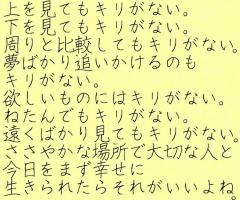 上を見てもキリがない。
下を見てもキリがない。
周りと比較してもキリがない。
夢ばかり追いかけるのも
キリがない。
欲しいものにはキリがない。
ねたんでもキリがない。
遠くばかり見てもキリがない。
ささやかな場所で大切な人と
今日をまず幸せに
生きられたらそれがいいよね。